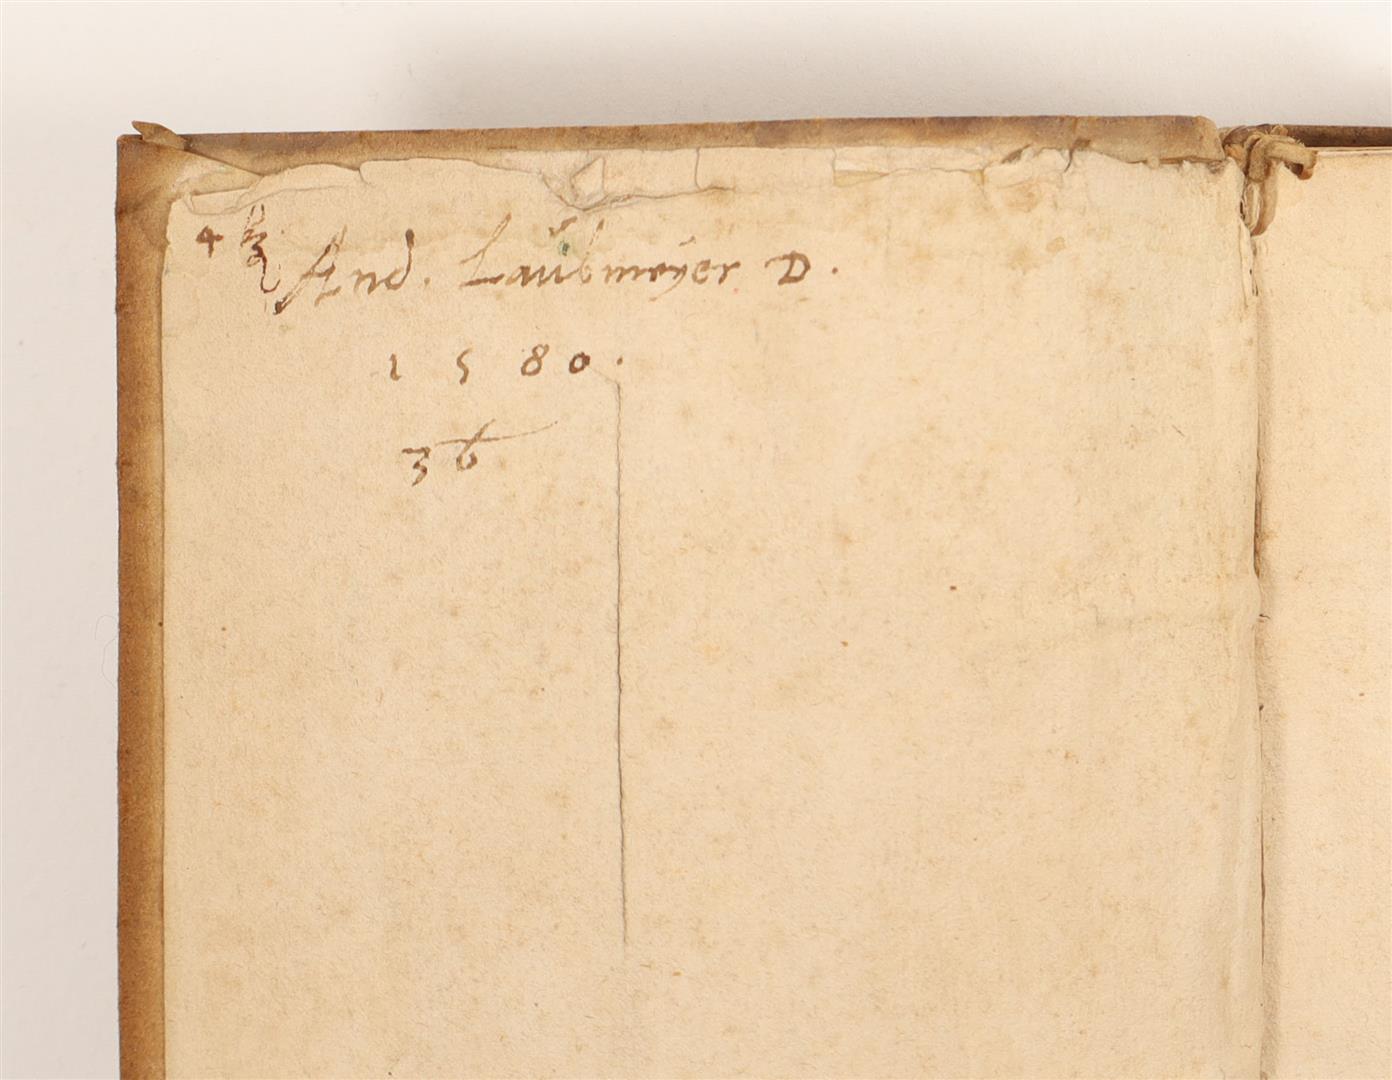 4
And. Laubmeÿer D.
1580.
36